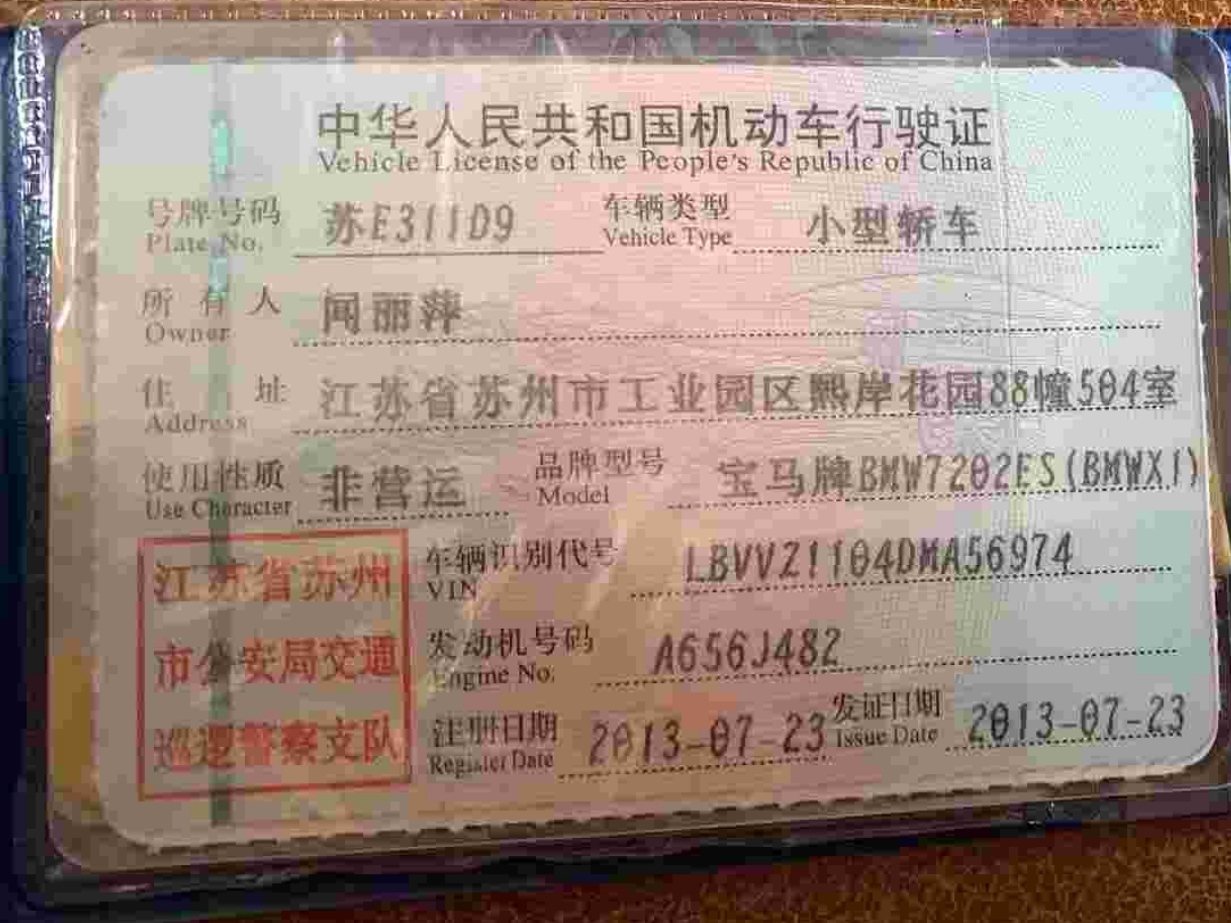 中华人民共和国机动车行驶证
Vehicle License of the People's Republic of China
号牌号码 苏E311D9 车辆类型 小型轿车
Plate No. Vehicle Type
所有人 闻丽萍
Owner
住址 江苏省苏州市工业园区熙岸花园88幢504室
Address
使用性质 非营运 品牌型号 宝马牌BMW7202ES(BMWX1)
Use Character Model
江苏省苏州
市公安局交通
巡逻警察支队
车辆识别代号 LBVVZ1104DMA56974
VIN
发动机号码 A656J482
Engine No.
注册日期 2013-07-23 发证日期 2013-07-23
Register Date Issue Date